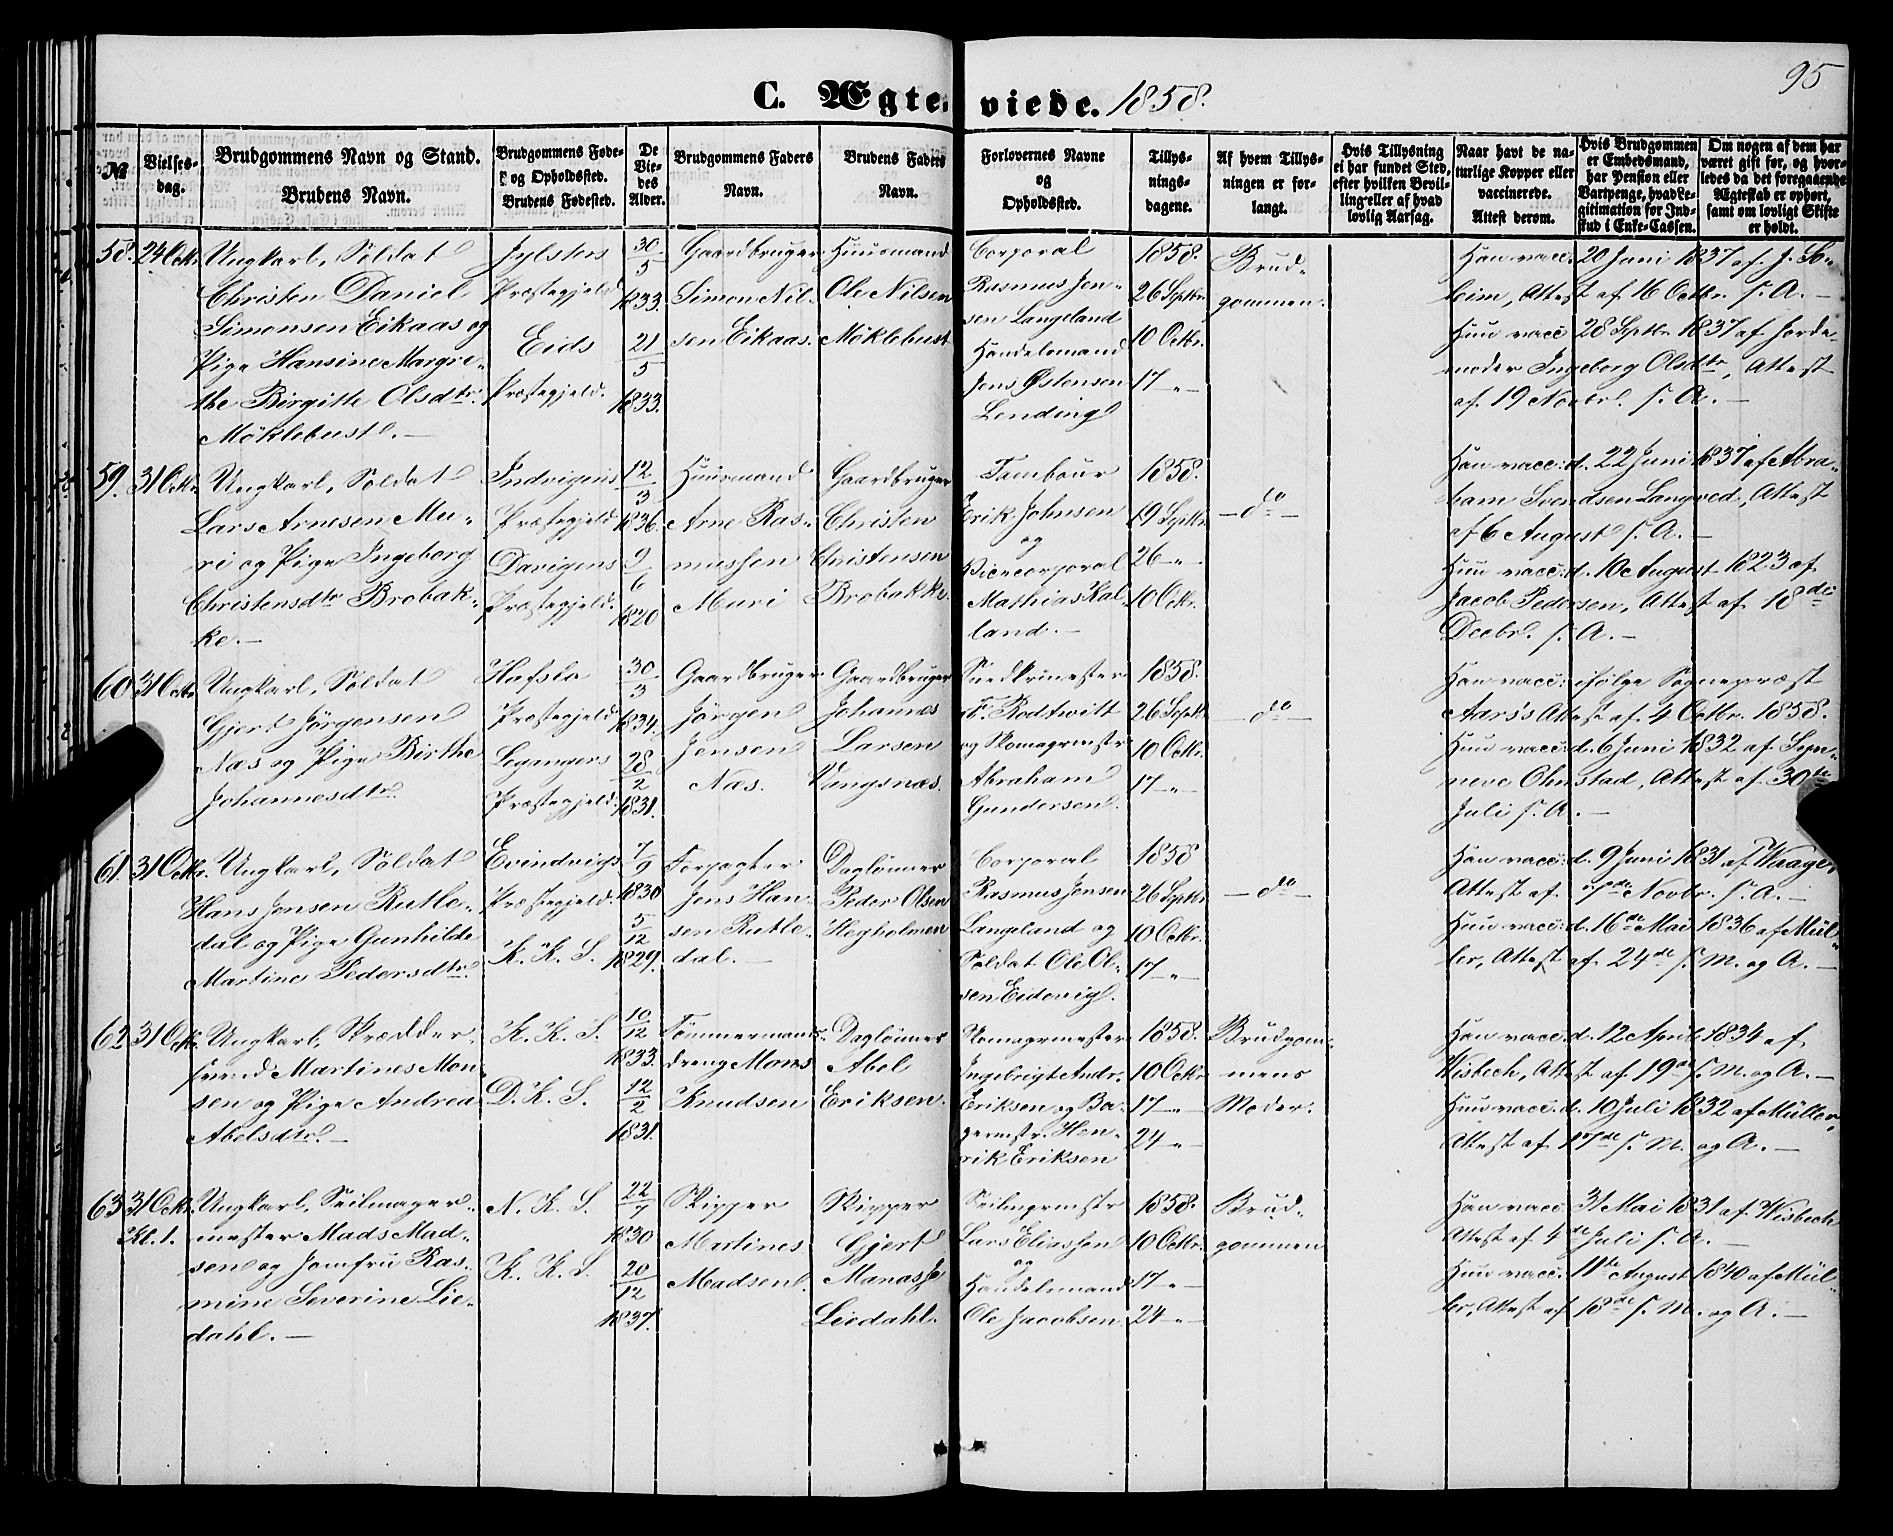 95
C. Ægteviede. 1858.
№
Vielses-
dag.
Brudgommens Navn og Stand.
Brudens Navn.
Brudgommens Føde-
og Opholdssted.
Brudens Fødested.
De
Vie-
des
Alder.
Brudgommens Faders
Navn.
Brudens Faders
Navn.
Forlovernes Navne
og
Opholdssted.
Tillys-
nings-
dagene.
Af hvem Tillys-
ningen er for-
langt.
Hvis Tillysning
ei har fundet Sted,
efter hvilken Bevil-
ling eller af hvad
lovlig Aarsag.
Naar havt de na-
turlige Kopper eller
vaccinerede.
Attest derom.
Hvis Brudgommen
er Embedsmand,
har Pension eller
Vartpenge, hvad Le-
gitimation for Ind-
skud i Enke-Cassen.
Om nogen af dem har
været gift før, og hvor-
ledes da det foregaaende
Ægteskab er ophørt,
samt om lovligt Skifte
er holdt.
58.
24 Octr.
Ungkarl, Soldat
Christen Daniel
Simonsen Eikaas og
Pige Hansine Margre-
the Birgitte Olsdtr.
Möklebust. —
Jylsters
Præstegjeld
Eids
Præstegjeld.
30
5
1833.
21
5
1833.
Gaardbruger
Simon Nil-
sen Eikaas.
Huusmand
Ole Nilsen
Möklebust
Corporal
Rasmus Jen-
sen Langeland
Handelsmand
Jens Østensen
Lending
1858.
26 Septbr.
10 Octbr.
17 -"-
Brud-
gommen.
Han vacc. 20 Juni 1837 af J. So-
heim, Attest af 16 Octbr. s. A. —
Hun vacc 28 Septbr 1837 af Jorde-
moder Ingeborg Olsdtr, Attest
af 19 Novbr. s. A. —
59.
31 Octr.
Ungkarl, Soldat
Lars Arnesen Mu-
ri og Pige Ingeborg
Christensdtr Brobak-
ke. —
Indvigens
Præstegjeld
Davigens
Præstegjeld.
12
3
1836.
9
6
1820
Huusmand
Arne Ras-
mussen
Muri
Gaardbruger
Christen
Christensen
Brobakke.
Tambour
Erik Johnsen
og
Vicecorporal
Mathias Kal-
land. —
1858.
19 Septbr.
26 -"-
10 Octbr.
— do —
Han vacc: d. 22 Juni 1837 af Abra-
ham Svendsen Langved, Attest
af 6 August s. A. —
Hun vacc: d. 10 August 1823 af
Jacob Pedersen, Attest af 18de
Decbr. s. A. —
60.
31 Octr.
Ungkarl, Soldat
Gjert Jörgensen
Næs og Pige Birthe
Johannesdtr.
Hafslo
Præstegjeld
Legangers
Præstegjeld.
30
3
1834.
28
2
1831.
Gaardbruger
Jörgen
Jensen
Næs.
Gaardbruger
Johannes
Larsen
Vangsnæs.
F. Rodtwitt
og Skomagrmstr.
Abraham
Gundersen.
1858.
26 Septbr.
10 Octbr.
17 -"-
— do —
Han vacc: ifölge Sognepræst
Aars's Attest af 4 Octbr. 1858.
Hun vacc: d. 6 Juni 1832 af Syn-
neve Ohnstad, Attest af 30te
Juli s. A. —
61.
31 Octr.
Ungkarl, Soldat
Hans Jensen Rutle-
dal og Pige Gunhilde
Martine Pedersdtr.
Evindvigs
Præstegjeld.
K. K. S.
7
9
1830
5
12
1829.
Forpagter
Jens Han-
sen Rutle-
dal. —
Daglönner
Peder Olsen
Hegholmen
Corporal
Rasmus Jensen
Langeland og
Soldat Ole Ol-
sen Eidevig.
1858
26 Septbr.
10 Octbr.
17 -"-
— do —
Han vacc: d. 9 Juni 1831 af Waage,
Attest af 17de Novbr. s. A. —
Hun vacc: d. 16de Mai 1836 af Mül-
ler, Attest af 24de s. M. og A. —
62.
31 Octr.
Ungkarl, Skrædder-
svend Martines Mon-
sen og Pige Andrea
Abelsdtr. —
K. K. S.
D. K. S.
10
12
1833.
12
2
1831.
Tömmermands-
dreng Mons
Knudsen
Daglönner
Abel
Eriksen.
Skomagrmester
Ingebrigt Andr.
Eriksen og Ba-
germstr. Hen-
rik Eriksen
1858.
10 Octbr
17 -"-
24 -"-
Brudgom-
mens
Moder.
Han vacc. d. 12 April 1834 af
Wisbech, Attest af 19de s. M. og A. —
Hun vacc. d. 10 Juli 1832 af Müller,
Attest af 17de s. M. og A. —
63.
31 Octr.
Kl. 1.
Ungkarl, Seilmager-
mester Mads Mad-
sen og Jomfru Ras-
mine Severine Lie-
dahl. —
N. K. S.
K. K. S.
22
7
1830
20
12
1837.
Skipper
Martines
Madsen.
Skipper
Gjert
Manasse
Liedahl.
Seilmgrmstr
Lars Eliassen
og
Handelsmand
Ole Jacobsen
1858.
10 Octbr.
17 -"-
24 -"-
Brud-
gommen
Han vacc 31 Mai 1831 af Wisbech
Attest af 4de Juli s. A. —
Hun vacc. 11te August 1840 af Mül-
ler, Attest af 18de s. M. og A. —